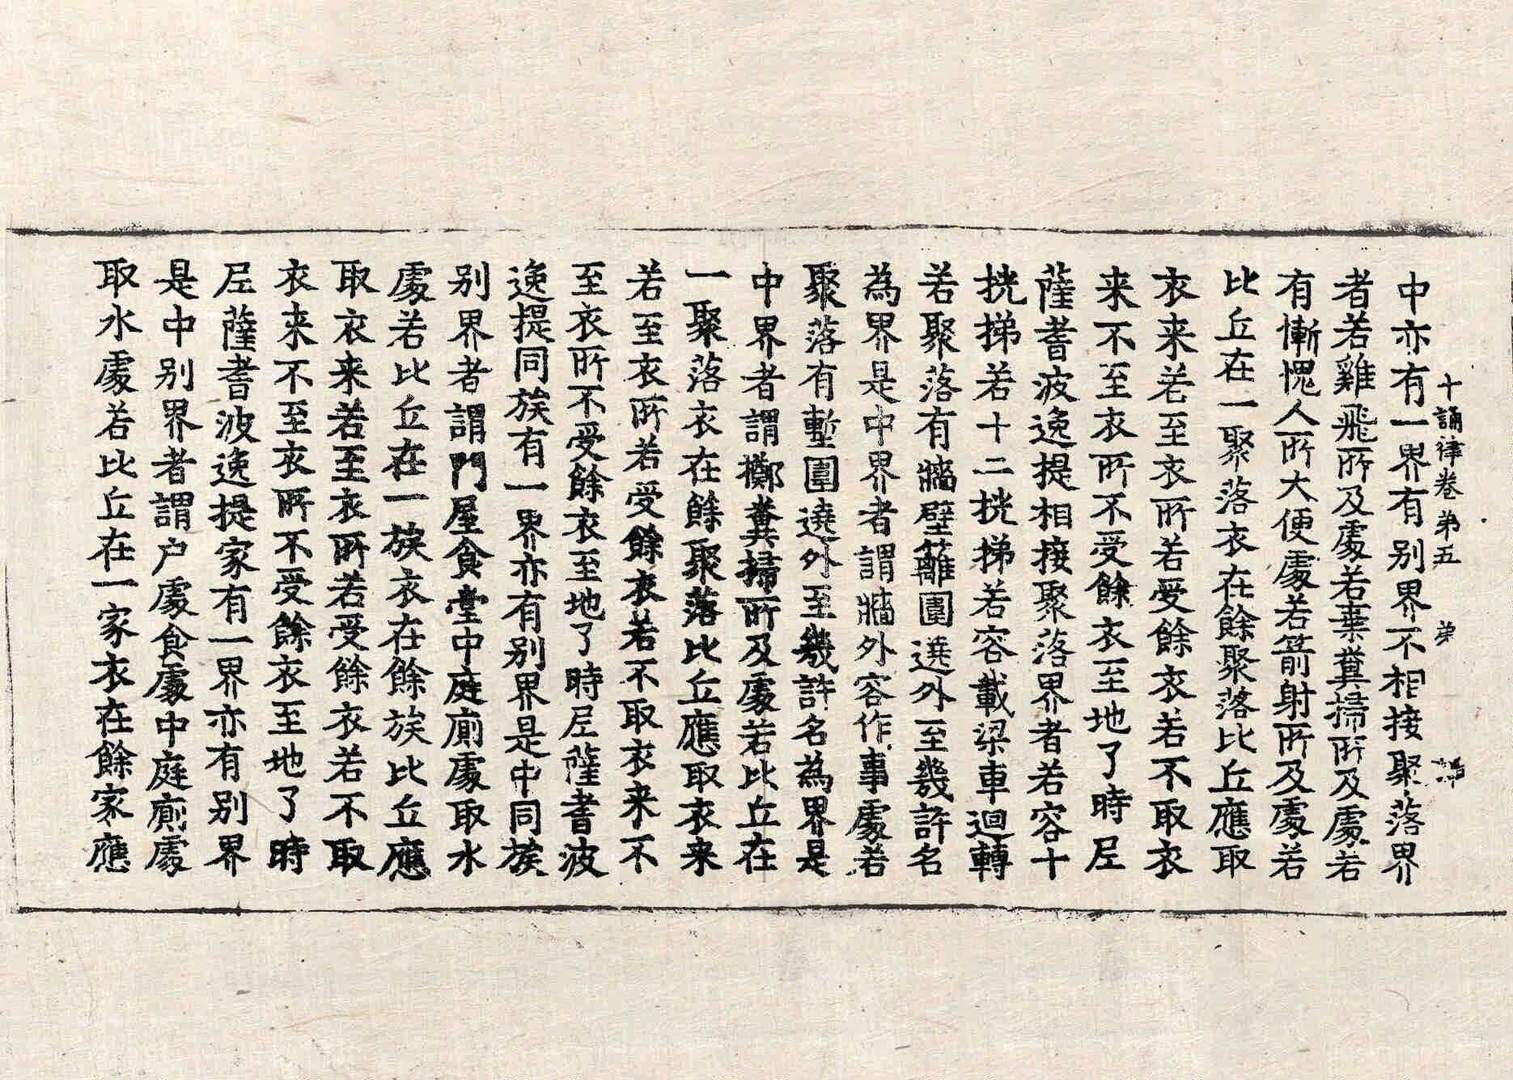 十誦律卷苐五
中亦有一界有别界不相接聚落界
者若雞飛所及䖏若棄糞掃所及䖏若
有慚愧人所大便䖏若箭射所及䖏若
比丘在一聚落衣在餘聚落比丘應取
衣来若至衣所若受餘衣若不取衣
来不至衣所不受餘衣至地了時尼
薩耆波逸提相接聚落界者若容十
桄梯若十二桄梯若容載梁車迴轉
若聚落有牆壁籬圍遶外至幾許名
為界是中界者謂牆外容作事䖏若
聚落有塹圍遶外至幾許名為界是
中界者謂擲糞掃所及䖏若比丘在
一聚落衣在餘聚落比丘應取衣来
若至衣所若受餘衣若不取衣来不
至衣所不受餘衣至地了時尼薩耆波
逸提同族有一界亦有别界是中同族
别界者謂門屋食堂中庭廁䖏取水
䖏若比丘在一族衣在餘族比丘應
取衣来若至衣所若受餘衣若不取
衣来不至衣所不受餘衣至地了時
尼薩耆波逸提家有一界亦有别界
是中别界者謂户䖏食䖏中庭廁䖏
取水䖏若比丘在一家衣在餘家應